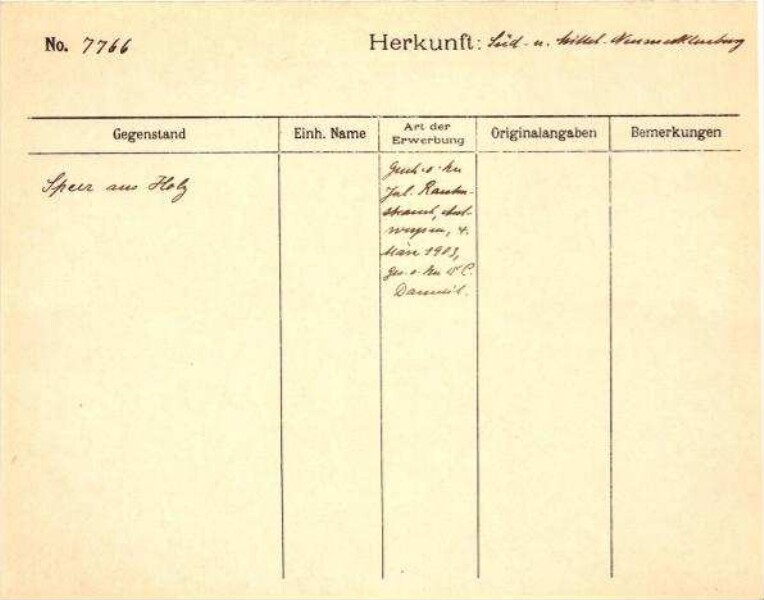 No. 7766
Herkunft: Süd- u. Mittel-Neumecklenburg
Gegenstand
Einh. Name
Art der Erwerbung
Originalangaben
Bemerkungen
Speer aus Holz
Gesch. v. Hrn
Jul. Rauten-
strauch, Ant-
werpen, 4.
März 1903,
ges. v. Hrn